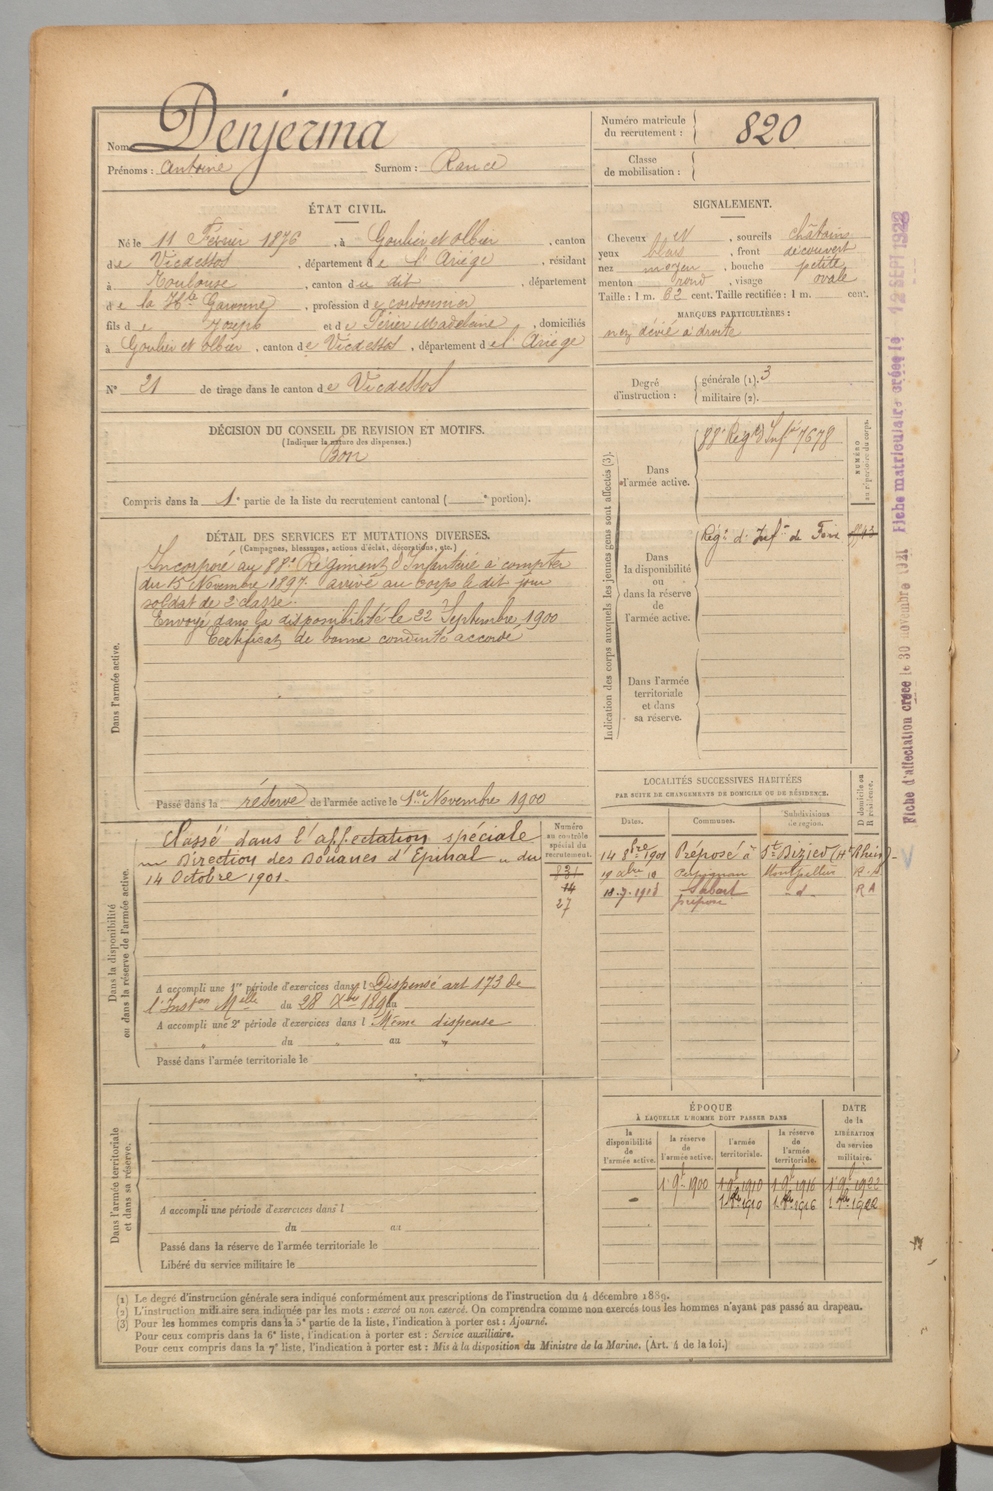 Nom Denjerma
Prénoms : Antoine Surnom : Rancé
Numéro matricule
du recrutement : 820
Classe
de mobilisation :
ÉTAT CIVIL.
Né le 11 Février 1876, à Goulier et Olbier, canton
de Vicdessos, département de l'Ariège, résidant
à Toulouse, canton du dit, département
de la Hte Garonne, profession de cordonnier
fils de Joseph et de Périer Madelaine, domiciliés
à Goulier et Olbier, canton de Vicdessos, département de l'Ariège
N° 21 de tirage dans le canton de Vicdessos
SIGNALEMENT.
Cheveux et, sourcils châtains
yeux bleus, front découvert
nez moyen, bouche petite
menton rond, visage ovale
Taille : 1 m. 62 cent. Taille rectifiée : 1 m. cent.
MARQUES PARTICULIÈRES :
nez dévié à droite
Degré
d'instruction :
générale (1). 3
militaire (2).
DÉCISION DU CONSEIL DE REVISION ET MOTIFS.
(Indiquer la nature des dispenses.)
Bon
Compris dans la 1e partie de la liste du recrutement cantonal ( e portion).
DÉTAIL DES SERVICES ET MUTATIONS DIVERSES.
(Campagnes, blessures, actions d'éclat, décorations, etc.)
Dans l'armée active.
Incorporé au 88e Régiment d'Infanterie à compter
du 15 Novembre 1897 arrivé au corps le dit jour
soldat de 2e classe.
Envoyé dans la disponibilité le 22 Septembre 1900
Certificat de bonne conduite accordé
Passé dans la réserve de l'armée active le 1er Novembre 1900
Indication des corps auxquels les jeunes gens sont affectés (3).
Dans
l'armée active.
88e Régt d'Infie 7678
NUMÉRO
au répertoire du corps.
Dans
la disponibilité
ou
dans la réserve
de
l'armée active.
Régt d'Infie de Foix
Dans l'armée
territoriale
et dans
sa réserve.
Dans la disponibilité
ou dans la réserve de l'armée active.
Classé dans l'affectation spéciale
Direction des Douanes d'Epinal du
14 Octobre 1901.
Numéro
au contrôle
spécial du
recrutement.
831
14
27
A accompli une 1re période d'exercices dans l Dispensé art 173 de
l'Inston Melle du 28 Xbre 189 au
A accompli une 2e période d'exercices dans l Même dispense
du au
Passé dans l'armée territoriale le
LOCALITÉS SUCCESSIVES HABITÉES
PAR SUITE DE CHANGEMENTS DE DOMICILE OU DE RÉSIDENCE.
Dates. Communes. Subdivisions de région. D domicile ou R résidence.
14 8bre 1901 Préposé à St Dizier (Hte Rhin)
Perpignan Montpellier
18.7.1918 Sabart d RA
préposé
Dans l'armée territoriale
et dans sa réserve.
A accompli une période d'exercices dans l
du au
Passé dans la réserve de l'armée territoriale le
Libéré du service militaire le
ÉPOQUE
À LAQUELLE L'HOMME DOIT PASSER DANS
DATE
de la
LIBÉRATION
du service
militaire.
la
disponibilité
de
l'armée active.
la réserve
de
l'armée active.
l'armée
territoriale.
la réserve
de
l'armée
territoriale.
1 9b 1900 1 9b 1910 1 9b 1916 1 9b 1922
1 8bre 1910 1 8bre 1916 1 8bre 1922
(1) Le degré d'instruction générale sera indiqué conformément aux prescriptions de l'instruction du 4 décembre 1889.
(2) L'instruction militaire sera indiquée par les mots : exercé ou non exercé. On comprendra comme non exercés tous les hommes n'ayant pas passé au drapeau.
(3) Pour les hommes compris dans la 5e partie de la liste, l'indication à porter est : Ajourné.
Pour ceux compris dans la 6e liste, l'indication à porter est : Service auxiliaire.
Pour ceux compris dans la 7e liste, l'indication à porter est : Mis à la disposition du Ministre de la Marine. (Art. 4 de la loi.)
Fiche d'affectation créée le 30 novembre Fiche matriculaire créée le 12 SEPT 1922